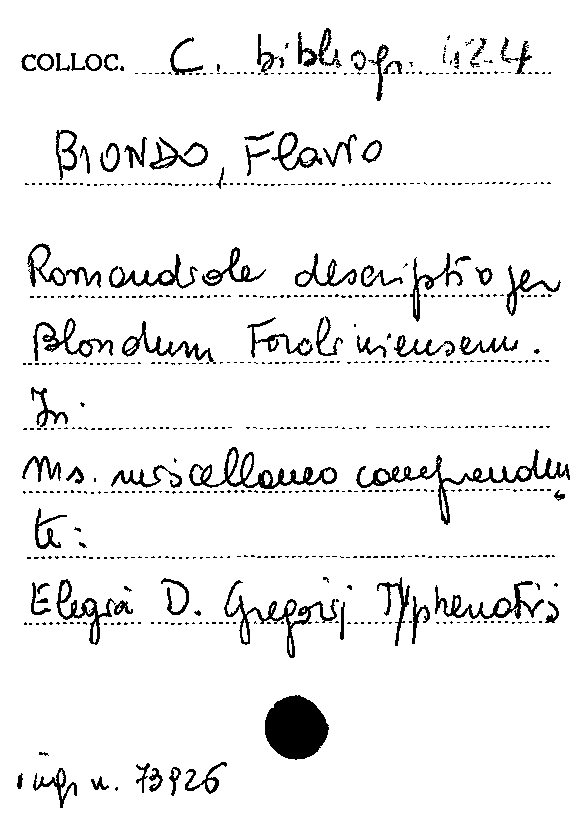 COLLOC. C. bibliogr. 424
BIONDO, Flavio
Romandiole descriptio per
Blondum Foroliviensem.
In:
Ms. miscellaneo comprenden
te:
Elegia D. Gregorij Typhernatis
ingr. n. 73926